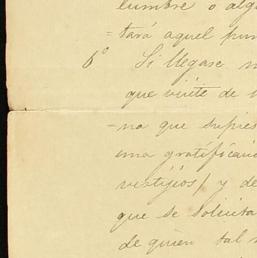 lumbre o alg
=tará aquel pun
6º Si llegase
que viste de
=na que supres
una gratificació
vestigios, y de
que se solicita
de quien tal